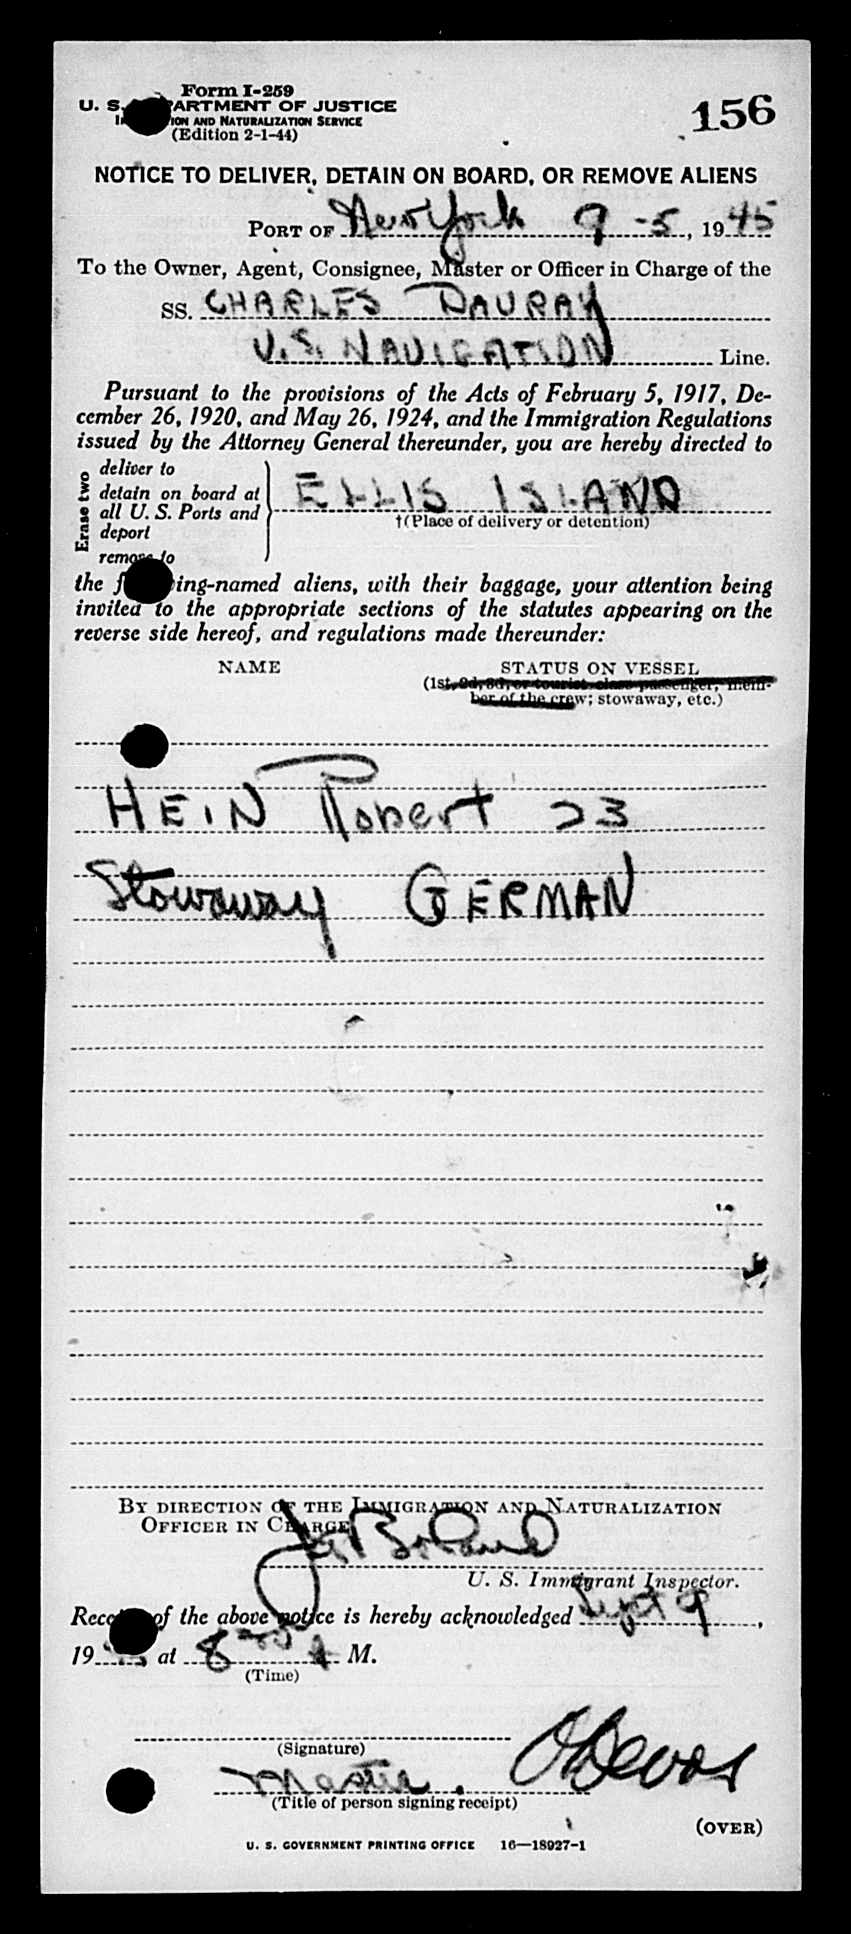 Form I-259
U. S. DEPARTMENT OF JUSTICE
ION AND NATURALIZATION SERVICE
(Edition 2-1-44)
156
NOTICE TO DELIVER, DETAIN ON BOARD, OR REMOVE ALIENS
PORT OF New York 9 -5, 1945
To the Owner, Agent, Consignee, Master or Officer in Charge of the
SS. CHARLES DAURAY
U.S. NAVIGATION Line.
Pursuant to the provisions of the Acts of February 5, 1917, De-
cember 26, 1920, and May 26, 1924, and the Immigration Regulations
issued by the Attorney General thereunder, you are hereby directed to
Erase two
deliver to
detain on board at
all U. S. Ports and
deport
remove to
ELLIS ISLAND
†(Place of delivery or detention)
the following-named aliens, with their baggage, your attention being
invited to the appropriate sections of the statutes appearing on the
reverse side hereof, and regulations made thereunder:
NAME STATUS ON VESSEL
(1st, 2d, 3d, or tourist class passenger, mem-
ber of the crew; stowaway, etc.)
HEIN Robert 23
Stowaway GERMAN
BY DIRECTION OF THE IMMIGRATION AND NATURALIZATION
OFFICER IN CHARGE
U. S. Immigrant Inspector.
Receipt of the above notice is hereby acknowledged Sept 9,
19 at 8 A M.
(Time)
(Signature)
Master.
(Title of person signing receipt)
(OVER)
U. S. GOVERNMENT PRINTING OFFICE 16—18927-1